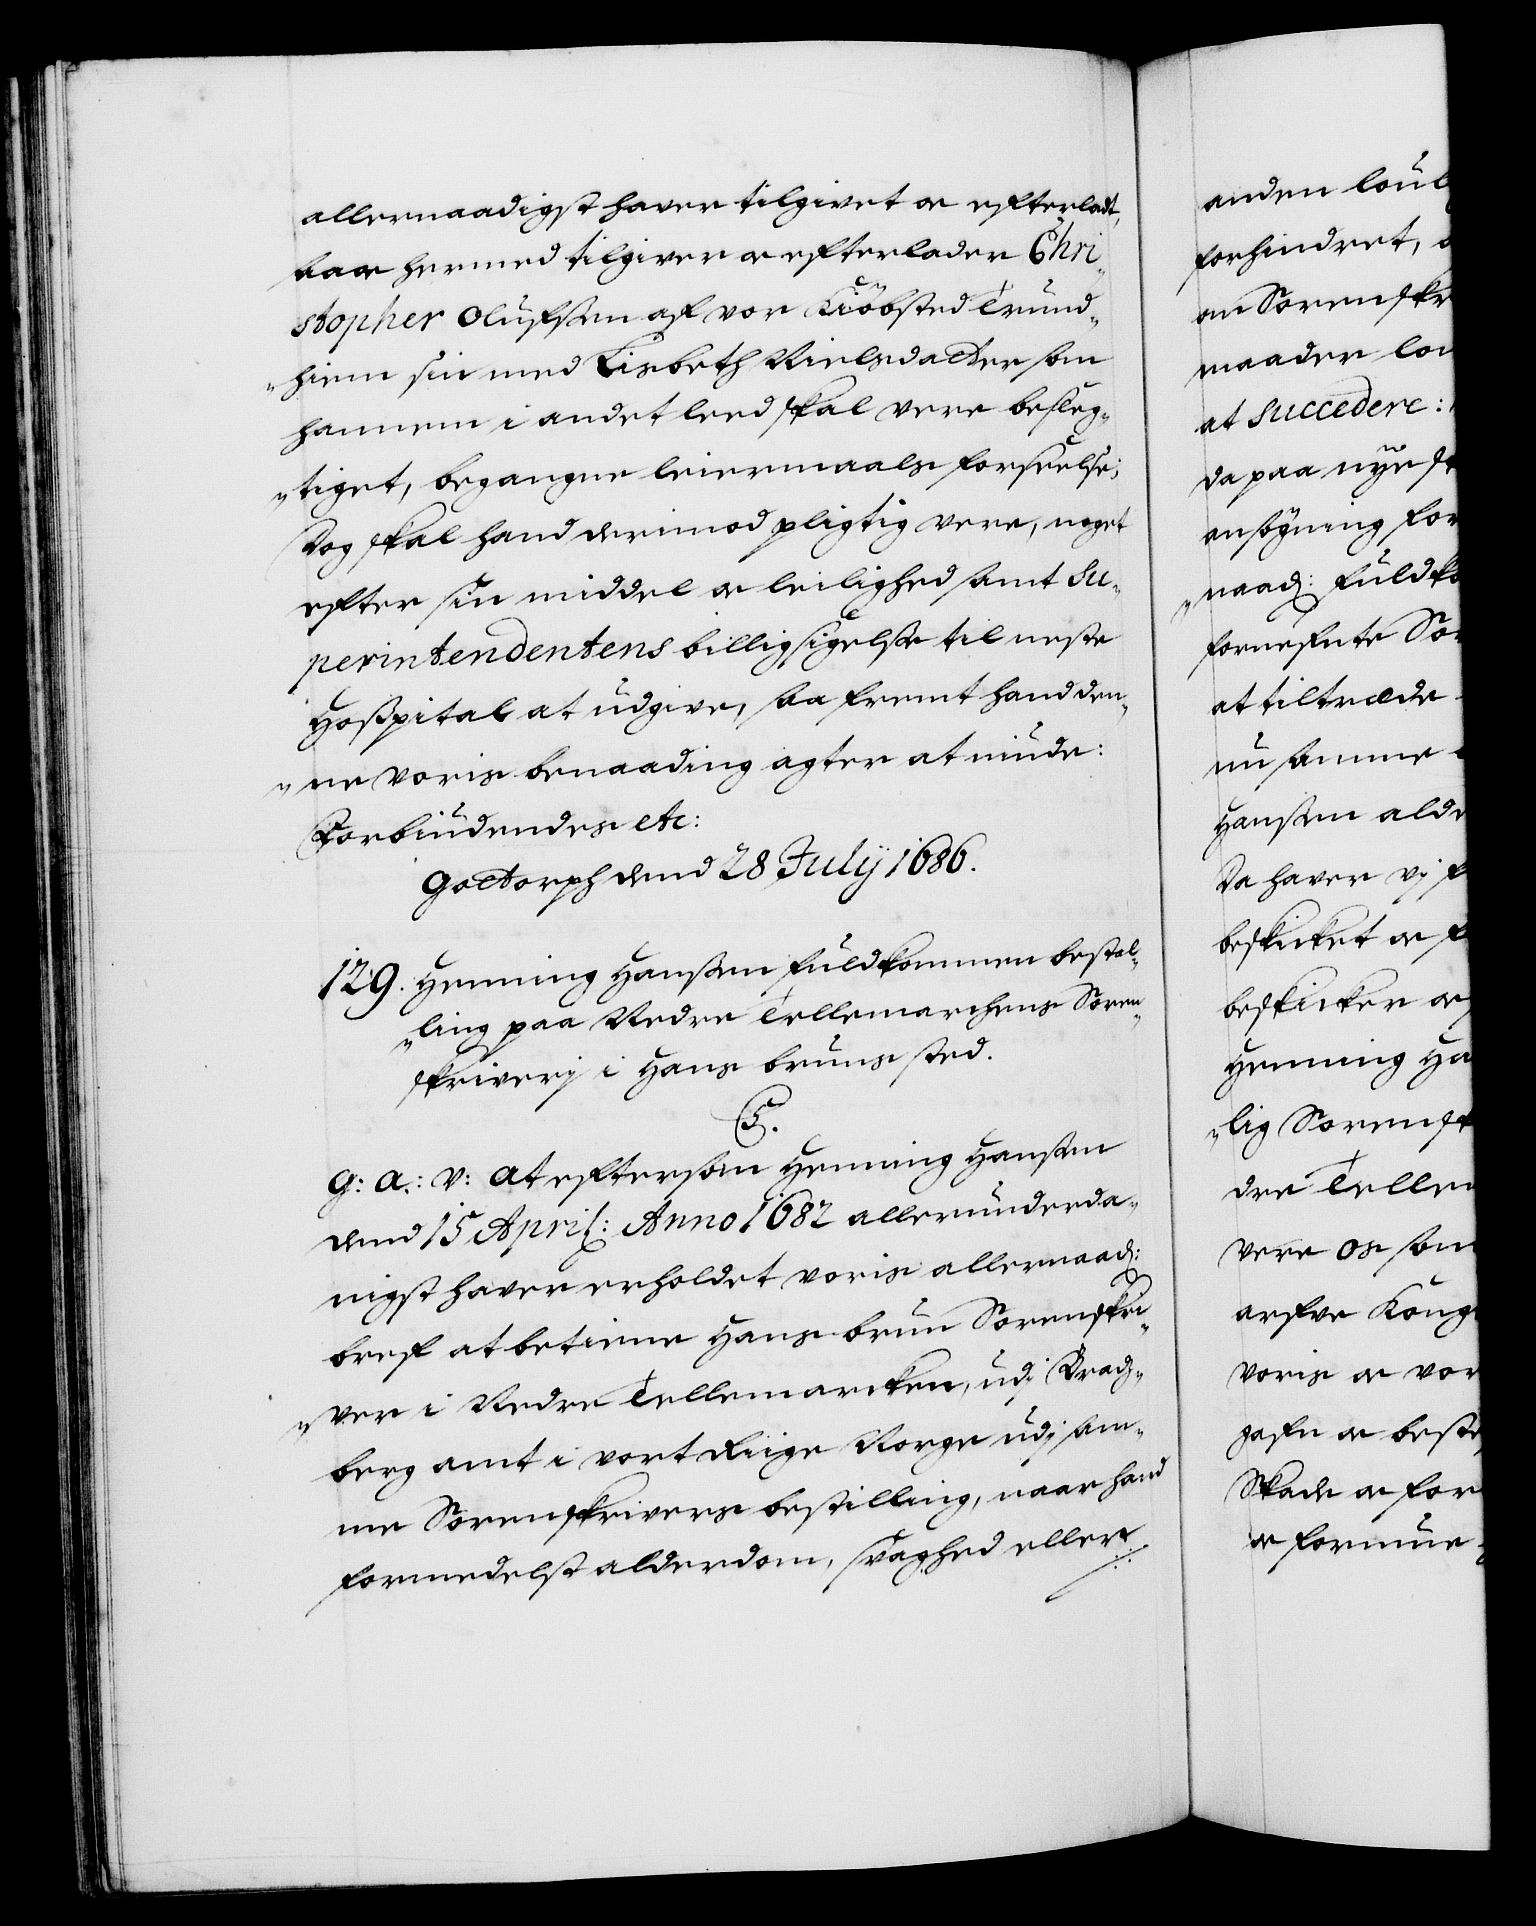 allernaadigst haver tilgivet oc efterladt,
saa oc hermed tilgiver oc efterlader Chri„
stopher Olufssen af vor Kiöbsted Trund„
„hiem sin med Lisbeth Nielsdatter som
hannem i andet leed skal vere besleg„
„tiget, begangne leiermaals forseelse;
Dog skal hand derimod pligtig vere, noget
efter sin middel oc leilighed samt Su„
perintendentens billigsigelse til neste
Hospital at udgive, saa fremt hand den„
„ne voris benaading agter at niude:
Forbiudendes etc:
Gottorph dend 28 Julij 1686.
129. Henning Hanssen fuldkommen bestal„
„ling paa Nedre Tellemarchens Soren„
skriverj i Hans bruns sted.
C5.
G: A: V: At eftersom Henning Hanssen
dend 15 April: Anno 1682 allerunderda„
nigst haver erholdet voris allernaad:
bref at betiene Hans brun Sorenskri„
„ver i Nedre Tellemarcken, udj Brads„
berg amt i vort Riige Norge udj sam„
me Sorenskrivers bestilling, naar hand
formedelst alderdom, svaghed eller
anden loul
forhindret,
en Sorenskr
maader lou
at succedere:
da paa nye
ansögning for
„naad: fuldko
fornefnte Sor
at tiltræde
nu samme
Hanssen alde
Da haver vj
beskicket oc
beskicker oc
Henning Ha
„lig Sorensk
dre Tellem
vere os som
arfve Konge
voris oc vor
gafn oc beste
Skade oc for
oc formue